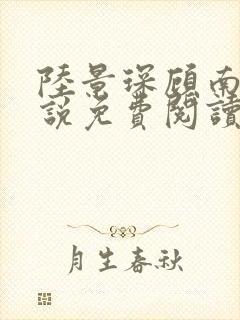 陸景琛顧南
說免費閱讀
月生春秋